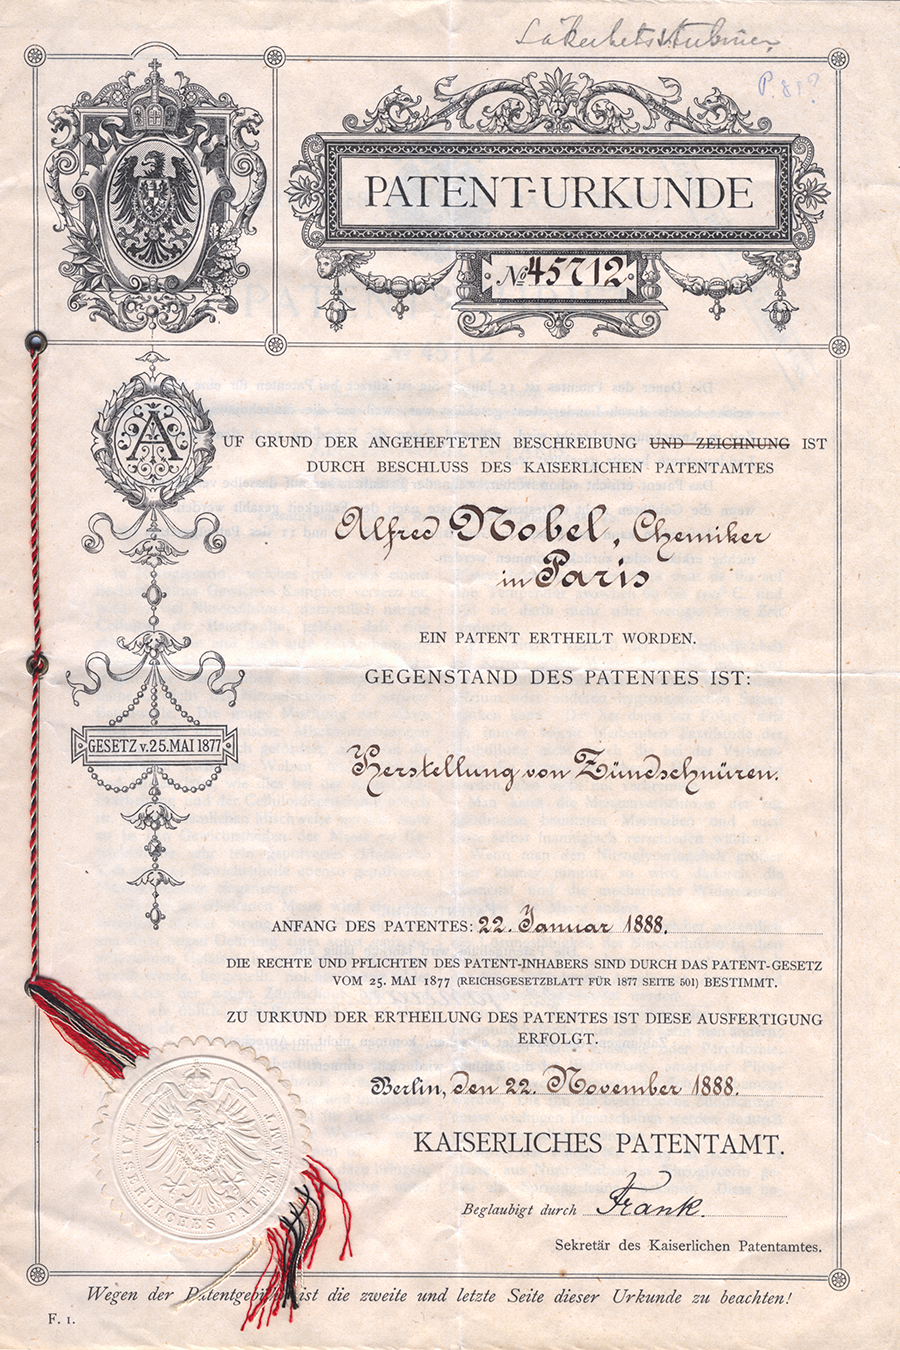 P. 81?
PATENT-URKUNDE
№ 45712.
AUF GRUND DER ANGEHEFTETEN BESCHREIBUNG UND ZEICHNUNG IST
DURCH BESCHLUSS DES KAISERLICHEN PATENTAMTES
Alfred Nobel, Chemiker
in Paris
EIN PATENT ERTHEILT WORDEN.
GEGENSTAND DES PATENTES IST:
GESETZ v. 25. MAI 1877
Herstellung von Zündschnüren.
ANFANG DES PATENTES: 22. Januar 1888.
DIE RECHTE UND PFLICHTEN DES PATENT-INHABERS SIND DURCH DAS PATENT-GESETZ
VOM 25. MAI 1877 (REICHSGESETZBLATT FÜR 1877 SEITE 501) BESTIMMT.
ZU URKUND DER ERTHEILUNG DES PATENTES IST DIESE AUSFERTIGUNG
ERFOLGT.
Berlin, den 22. November 1888.
KAISERLICHES PATENTAMT.
KAISERLICHES PATENTAMT
Beglaubigt durch Frank.
Sekretär des Kaiserlichen Patentamtes.
Wegen der Patentgebühr ist die zweite und letzte Seite dieser Urkunde zu beachten!
F. 1.